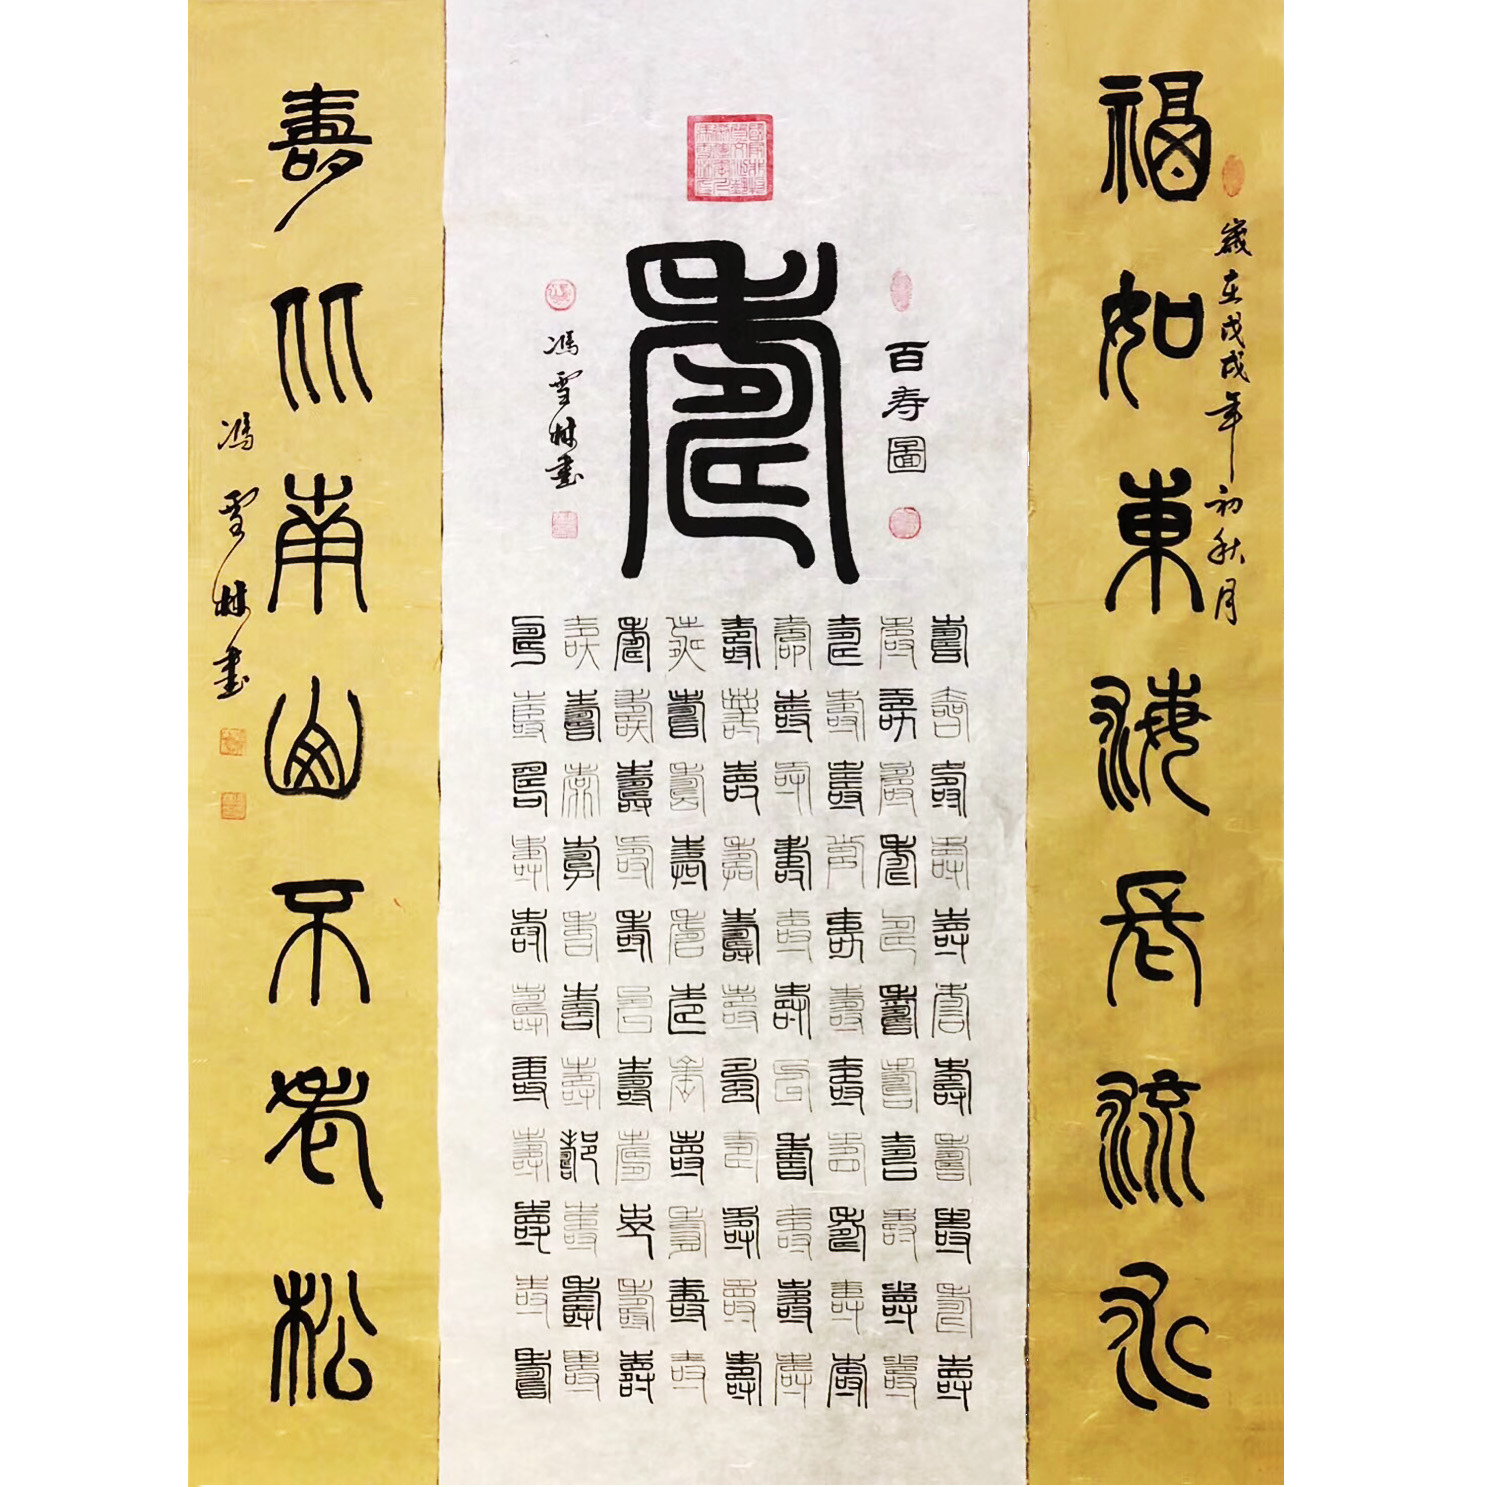 福如東海長流水
歲在戊戌年初秋月
百寿圖
壽
馮雪林書
壽壽壽壽壽壽壽壽壽壽壽
壽壽壽壽壽壽壽壽壽壽壽
壽壽壽壽壽壽壽壽壽壽壽
壽壽壽壽壽壽壽壽壽壽壽
壽壽壽壽壽壽壽壽壽壽壽
壽壽壽壽壽壽壽壽壽壽壽
壽壽壽壽壽壽壽壽壽壽壽
壽壽壽壽壽壽壽壽壽壽壽
壽壽壽壽壽壽壽壽壽壽壽
壽比南山不老松
馮雪林書